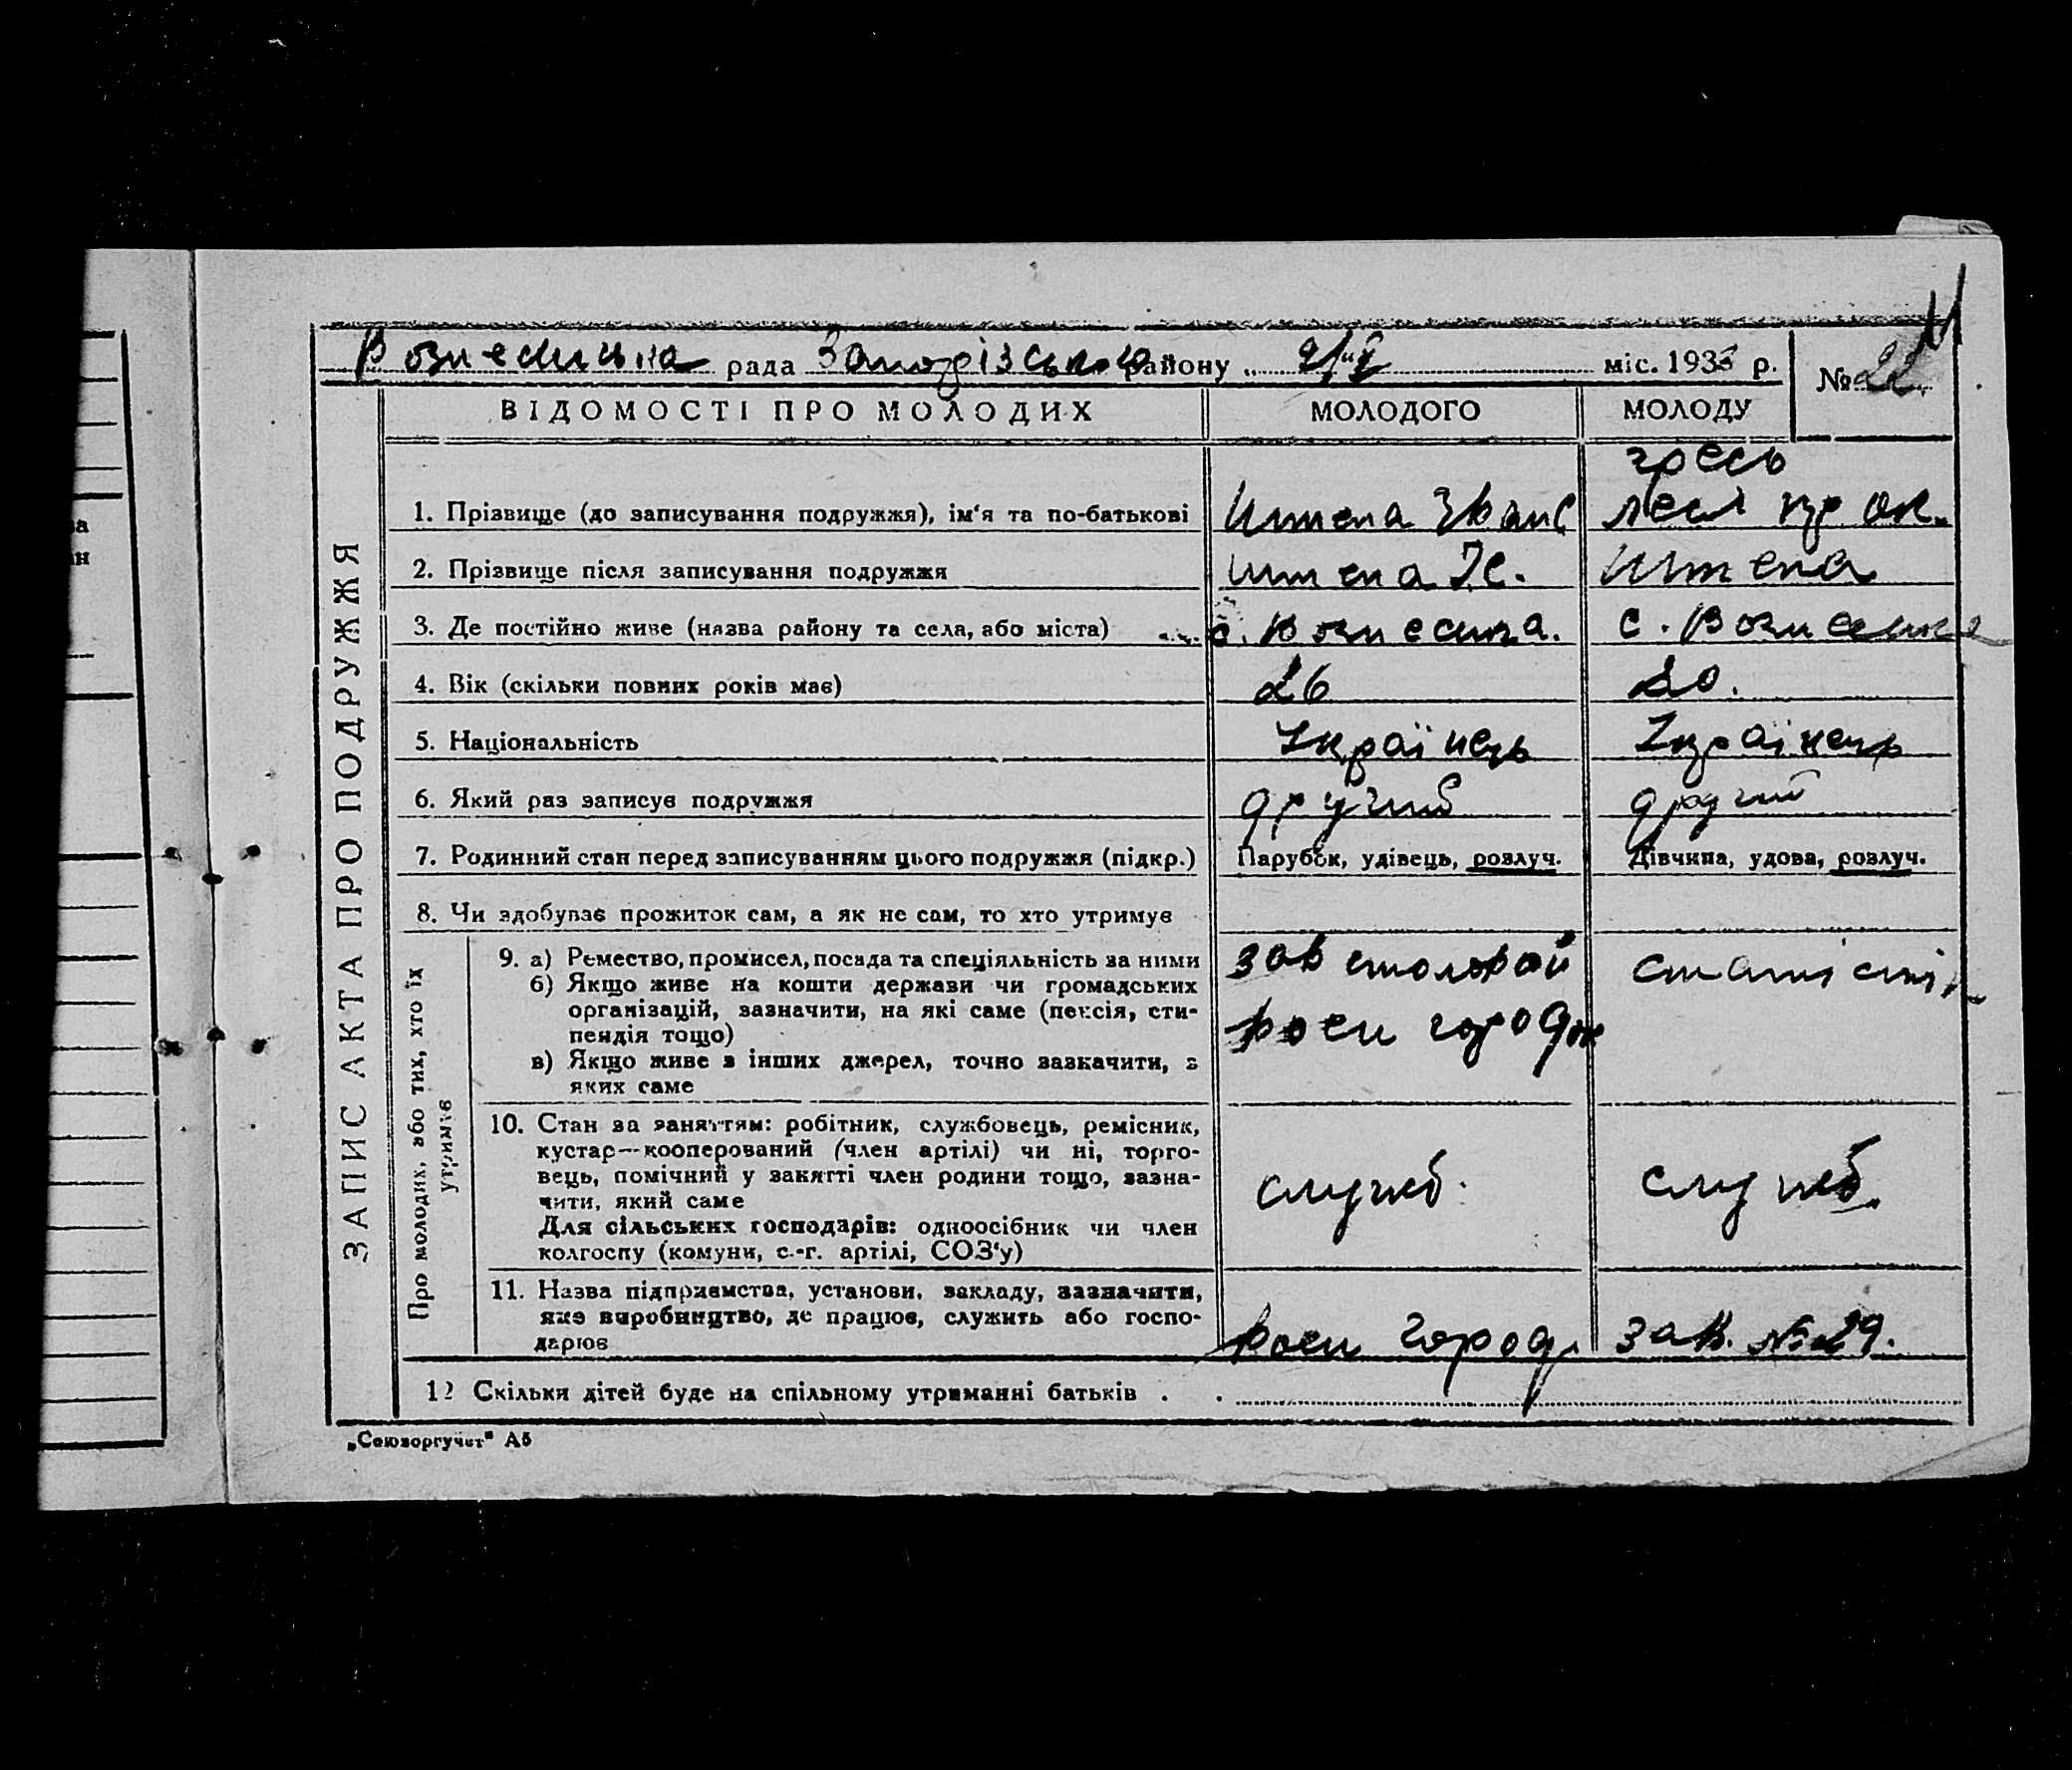 Вознесенська рада Запорізського району „ міс. 1933 р.
№ 22
ВІДОМОСТІ ПРО МОЛОДИХ МОЛОДОГО МОЛОДУ
ЗАПИС АКТА ПРО ПОДРУЖЖЯ
1. Прізвище (до записування подружжя), ім‘я та по-батькові
2. Прізвище після записування подружжя
3. Де постійно живе (назва району та села, або міста) с. Вознесенка. с. Вознесенка
4. Вік (скільки повних років має) 26 20.
5. Національність Українець Українець
6. Який раз записує подружжя другий другий
7. Родинний стан перед записуванням цього подружжя (підкр.) Парубок, удівець, розлуч. Дівчина, удова, розлуч.
8. Чи здобуває прожиток сам, а як не сам, то хто утримує
Про молодих, або тих, хто їх
утримує
9. а) Ремество, промисел, посада та спеціяльність за ними зав столовой
б) Якщо живе на кошти держави чи громадських
організацій, зазначити, на які саме (пенсія, сти-
пендія тощо)
в) Якщо живе з інших джерел, точно зазначити, з
яких саме
10. Стан за заняттям: робітник, службовець, ремісник,
кустар—кооперований (член артілі) чи ні, торго-
вець, помічний у занятті член родини тощо, зазна-
чити, який саме служб. служб.
Для сільських господарів: одноосібник чи член
колгоспу (комуни, с.-г. артілі, СОЗ‘у)
11. Назва підприємства, установи, закладу, зазначити,
яке виробництво, де працює, служить або госпо-
дарює зав. № 29.
12 Скільки дітей буде на спільному утриманні батьків . .
„Союзоргучет" А5